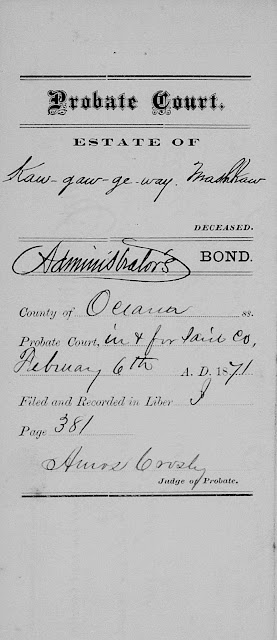 Probate Court.
ESTATE OF
Kaw-gaw-ge-way. Mashkaw
DECEASED.
Administrator's BOND.
County of Oceana ss.
Probate Court, in & for said Co,
February 6th A. D. 1871
Filed and Recorded in Liber
Page 381
Amos Crosby
Judge of Probate.